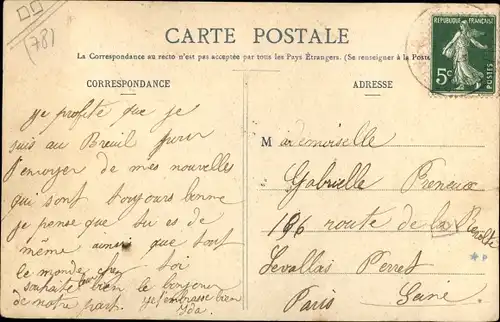 (78)
CARTE POSTALE
La Correspondance au recto n'est pas acceptée par tous les Pays Étrangers. (Se renseigner à la Poste
CORRESPONDANCE
ADRESSE
REPUBLIQUE FRANÇAISE
5c
POSTES
je profite que je
suis au Breuil pour
t'envoyer de mes nouvelles
qui sont toujours bonne
je pense que tu es de
même ainsi que tout
le monde chez toi
souhaite bien le bonjour
de notre part. je t'embrasse bien
Ida.
Mademoiselle
Gabrielle
166 route de la Revolte
Levallas Perret
Paris Seine